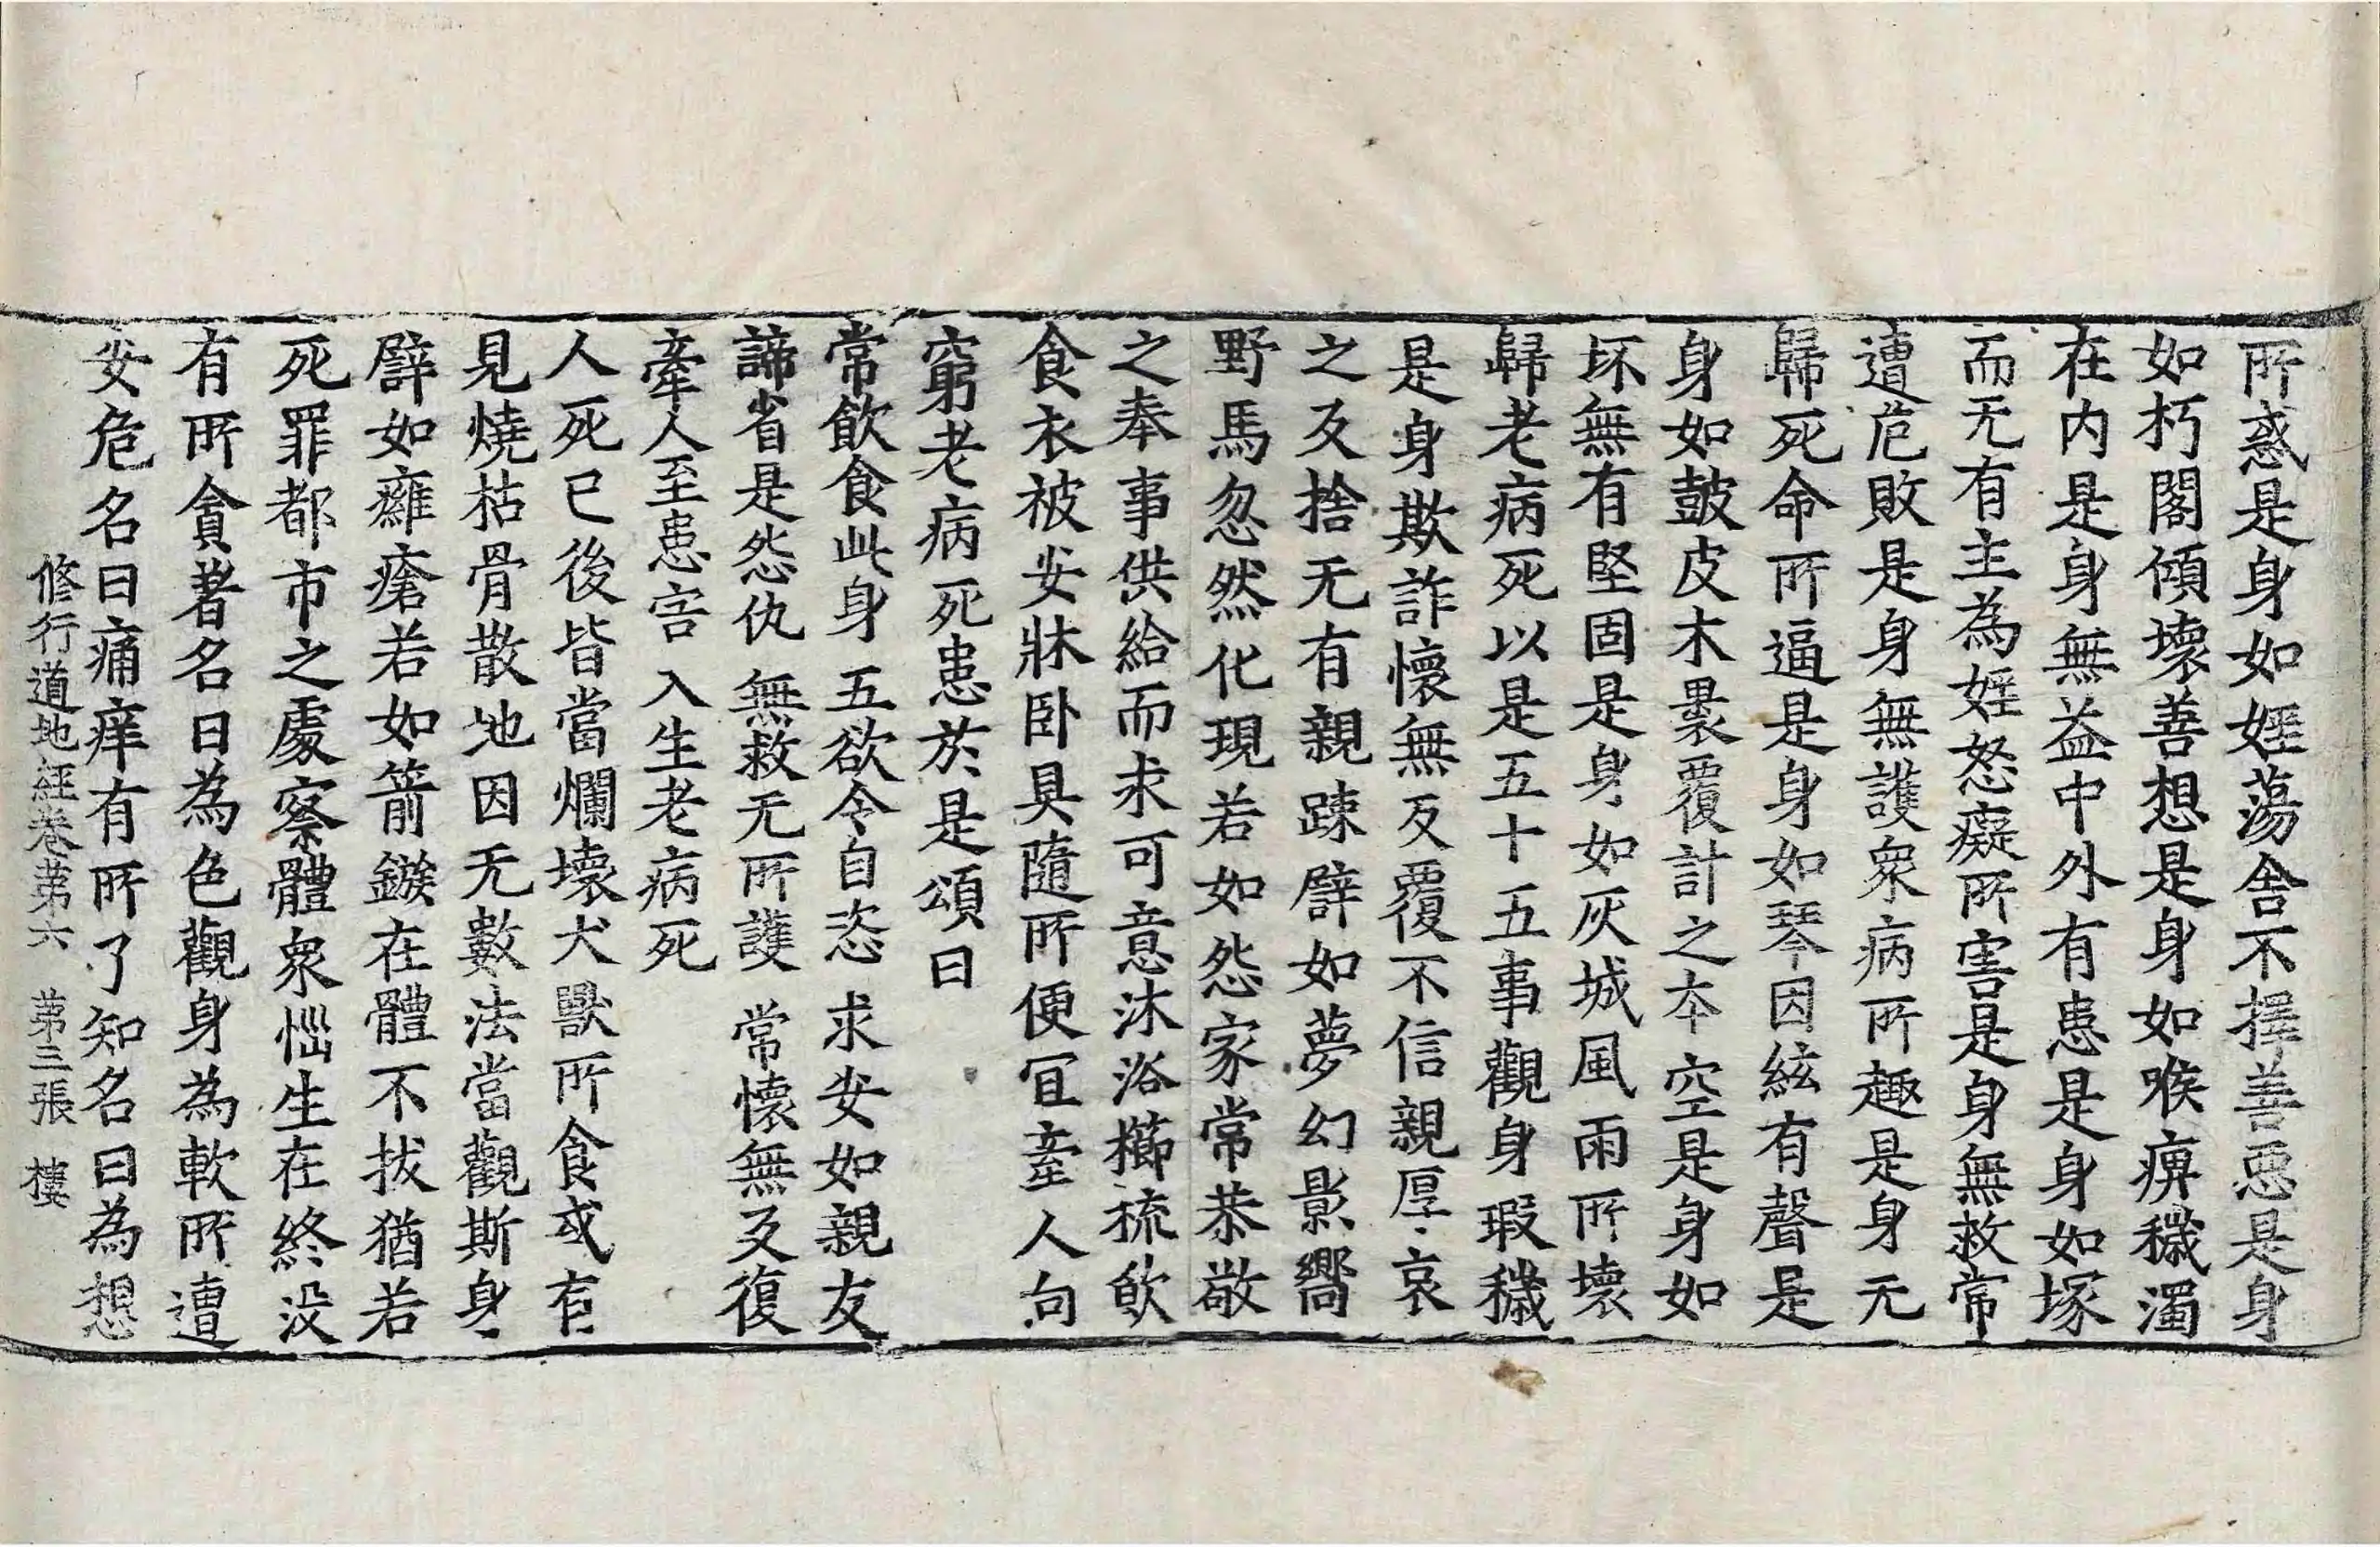 所惑是身如婬蕩舍不擇善惡是身
如朽閣傾壞善想是身如喉痹穢濁
在内是身無益中外有患是身如塚
而无有主為婬怒癡所害是身無救常
遭危敗是身無護衆病所趣是身无
歸死命所逼是身如琴因絃有聲是
身如鼓皮木裹覆計之夲空是身如
坏無有堅固是身如灰城風雨所壞
歸老病死以是五十五事觀身瑕穢
是身欺詐懷無反覆不信親厚哀
之反捨无有親踈譬如夢幻影嚮
野馬忽然化現若如怨家常恭敬
之奉事供給而求可意沐浴櫛梳飲
食衣被安牀卧具隨所便冝牽人向
窮老病死患於是頌曰
常飲食此身　五欲令自恣　求安如親友
諦省是怨仇　無救无所護　常懷無反復
牽人至患害　入生老病死
人死已後皆當爛壞犬獸所食或有
見燒枯骨散地因无數法當觀斯身
譬如癰瘡若如箭鏃在體不拔猶若
死罪都市之處察體衆惱生在終没
有所貪著名曰為色觀身為軟所遭
安危名曰痛痒有所了知名曰為想
修行道地經卷第六　第三張　樓